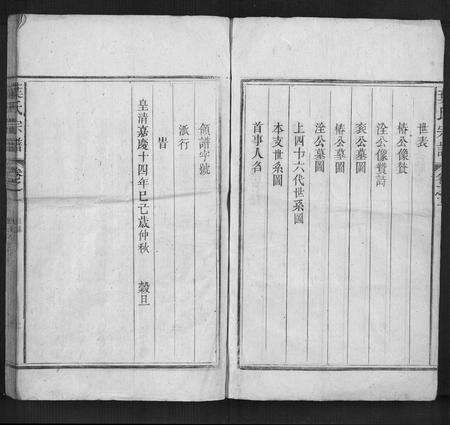 世表
椿公像贊
洤公像贊詩
袞公墓圖
椿公墓圖
洤公墓圖
上四十六代世系圖
本支世系圖
首事人名
領譜字號
派行
旹
皇清嘉慶十四年巳己歲仲秋 穀旦
葉氏宗譜 卷